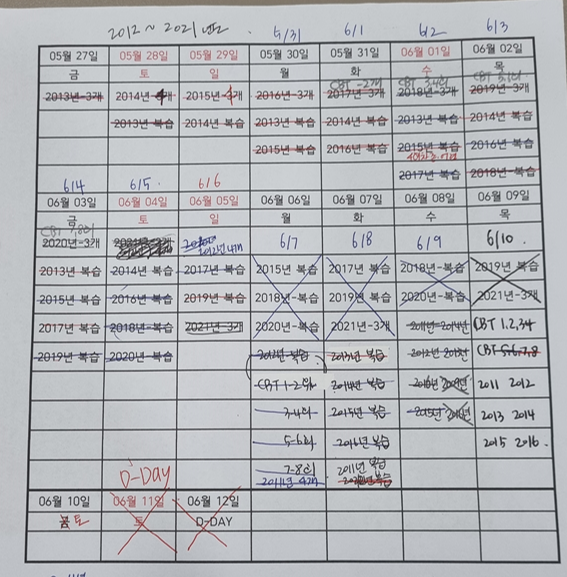 2012 ~ 2021년도
5/31 6/1 6/2 6/3
05월 27일 05월 28일 05월 29일 05월 30일 05월 31일 06월 01일 06월 02일
금 토 일 월 화 수 목
CBT CBT CBT
2013년-3개 2014년-4개 2015년-4개 2016년-3개 2017년-3개 2018년-3개 2019년-3개
2013년 복습 2014년 복습 2013년 복습 2014년 복습 2013년 복습 2014년 복습
2015년 복습 2016년 복습 2015년 복습 2016년 복습
2017년 복습 2018년 복습
6/4 6/5 6/6
06월 03일 06월 04일 06월 05일 06월 06일 06월 07일 06월 08일 06월 09일
금 토 일 월 화 수 목
CBT 7,8회
2020년-3개 2021년-3개 6/7 6/8 6/9 6/10
2013년 복습 2014년 복습 2017년 복습 2015년 복습 2017년 복습 2018년-복습 2019년 복습
2015년 복습 2016년 복습 2019년 복습 2018년-복습 2019년 복습 2020년-복습 2021년-3개
2017년 복습 2018년-복습 2021년-3개 2020년-복습 2021년-3개 2011년-2014년 CBT 1.2.34
2019년 복습 2020년-복습 2012년-복습 2013년 복습 2012년 CBT 5.6.7.8
CBT 1-2회 2014년 복습 2016년 2011 2012
3-4회 2015년 복습 2015년 2013 2014
5-6회 2016년 복습 2015 2016.
7-8회 2011년 복습
D-Day 2011년 4개
06월 10일 06월 11일 06월 12일
토 토 D-DAY